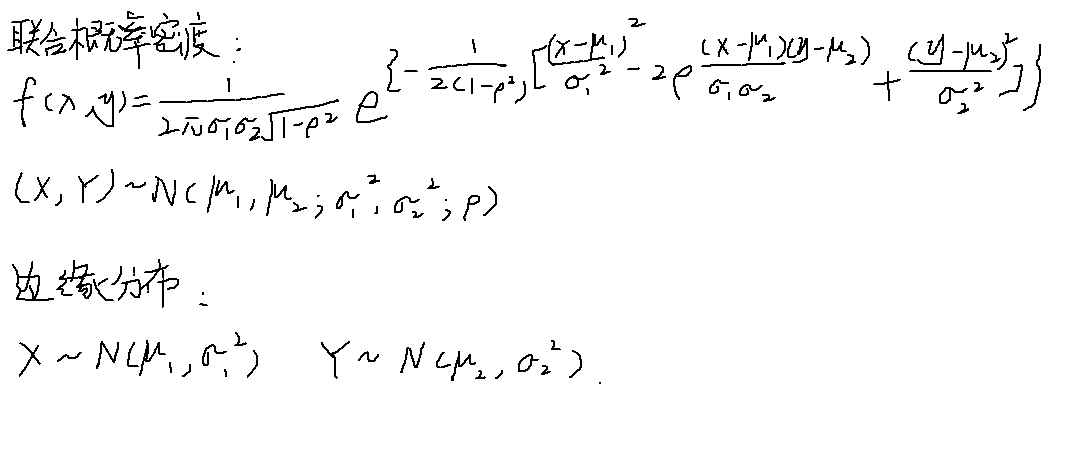 联合概率密度:
f(x,y)=\frac{1}{2πσ₁σ₂\sqrt{1-ρ²}} e^{\{-\frac{1}{2(1-ρ²)}[\frac{(x-μ₁)²}{σ₁²}-2ρ\frac{(x-μ₁)(y-μ₂)}{σ₁σ₂}+\frac{(y-μ₂)²}{σ₂²}]\}}
(X,Y)~N(μ₁,μ₂;σ₁²,σ₂²;ρ)
边缘分布:
X~N(μ₁,σ₁²) Y~N(μ₂,σ₂²).